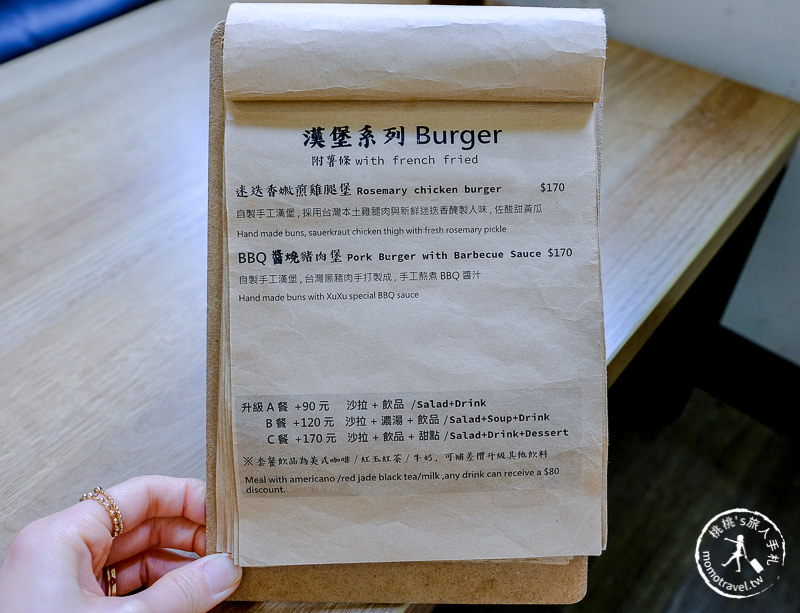 漢堡系列 Burger
附薯條 with french fried
迷迭香嫩煎雞腿堡 Rosemary chicken burger $170
自製手工漢堡 , 採用台灣本土雞腿肉與新鮮迷迭香醃製入味 , 佐酸甜黃瓜
Hand made buns, sauerkraut chicken thigh with fresh rosemary pickle
BBQ 醬燒豬肉堡 Pork Burger with Barbecue Sauce $170
自製手工漢堡 , 台灣黑豬肉手打製成 , 手工熬煮 BBQ 醬汁
Hand made buns with XuXu special BBQ sauce
升級 A 餐 +90 元 沙拉 + 飲品 /Salad+Drink
B 餐 +120 元 沙拉 + 濃湯 + 飲品 /Salad+Soup+Drink
C 餐 +170 元 沙拉 + 飲品 + 甜點 /Salad+Drink+Dessert
※ 套餐飲品為美式咖啡 / 紅玉紅茶 / 牛奶, 可補差價升級其他飲料
Meal with americano /red jade black tea/milk ,any drink can receive a $80
discount.
桃桃's旅人手札
momotravel.tw